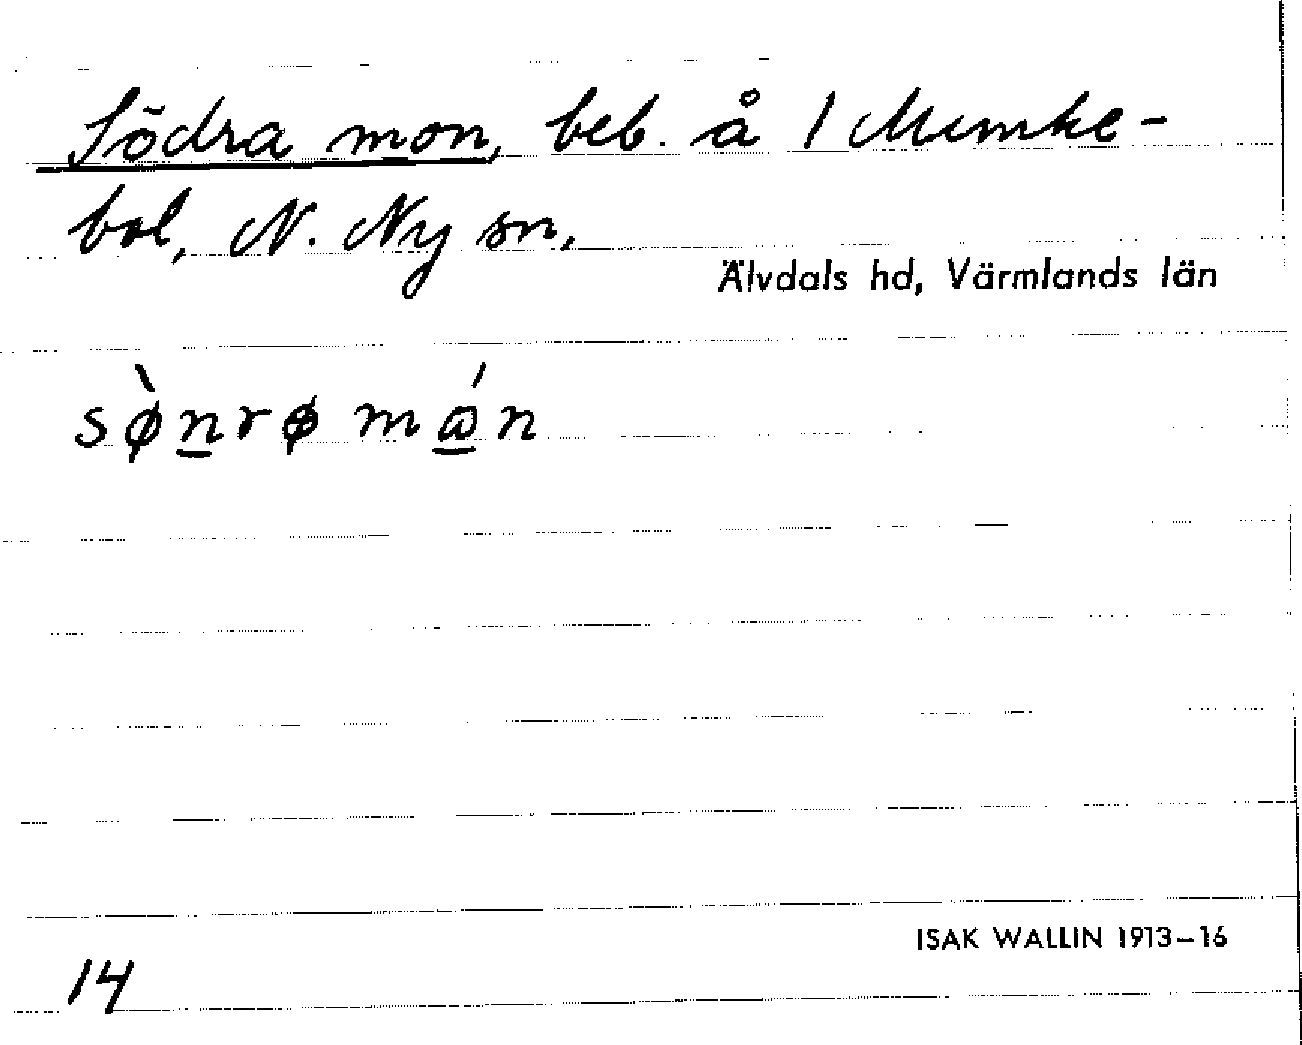 Södra mon, beb. å 1 Munke-
bol, N. Ny sn,
Älvdals hd, Värmlands län
sø̀n̲rø mɷ̲́n
ISAK WALLIN 1913–16
14